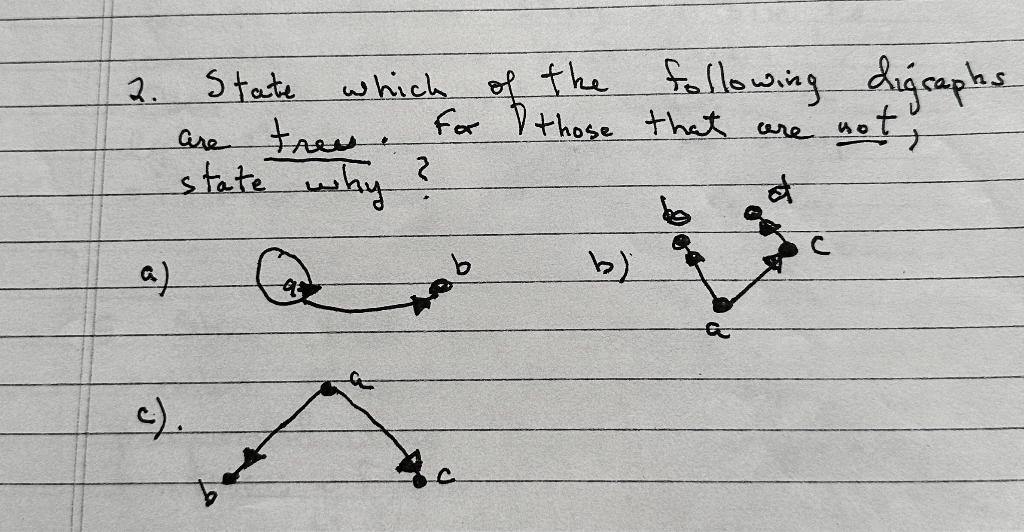 2. State which of the following digraphs
are trees. For those that are not,
state why?
a) a b b) b d c a
c). a b c